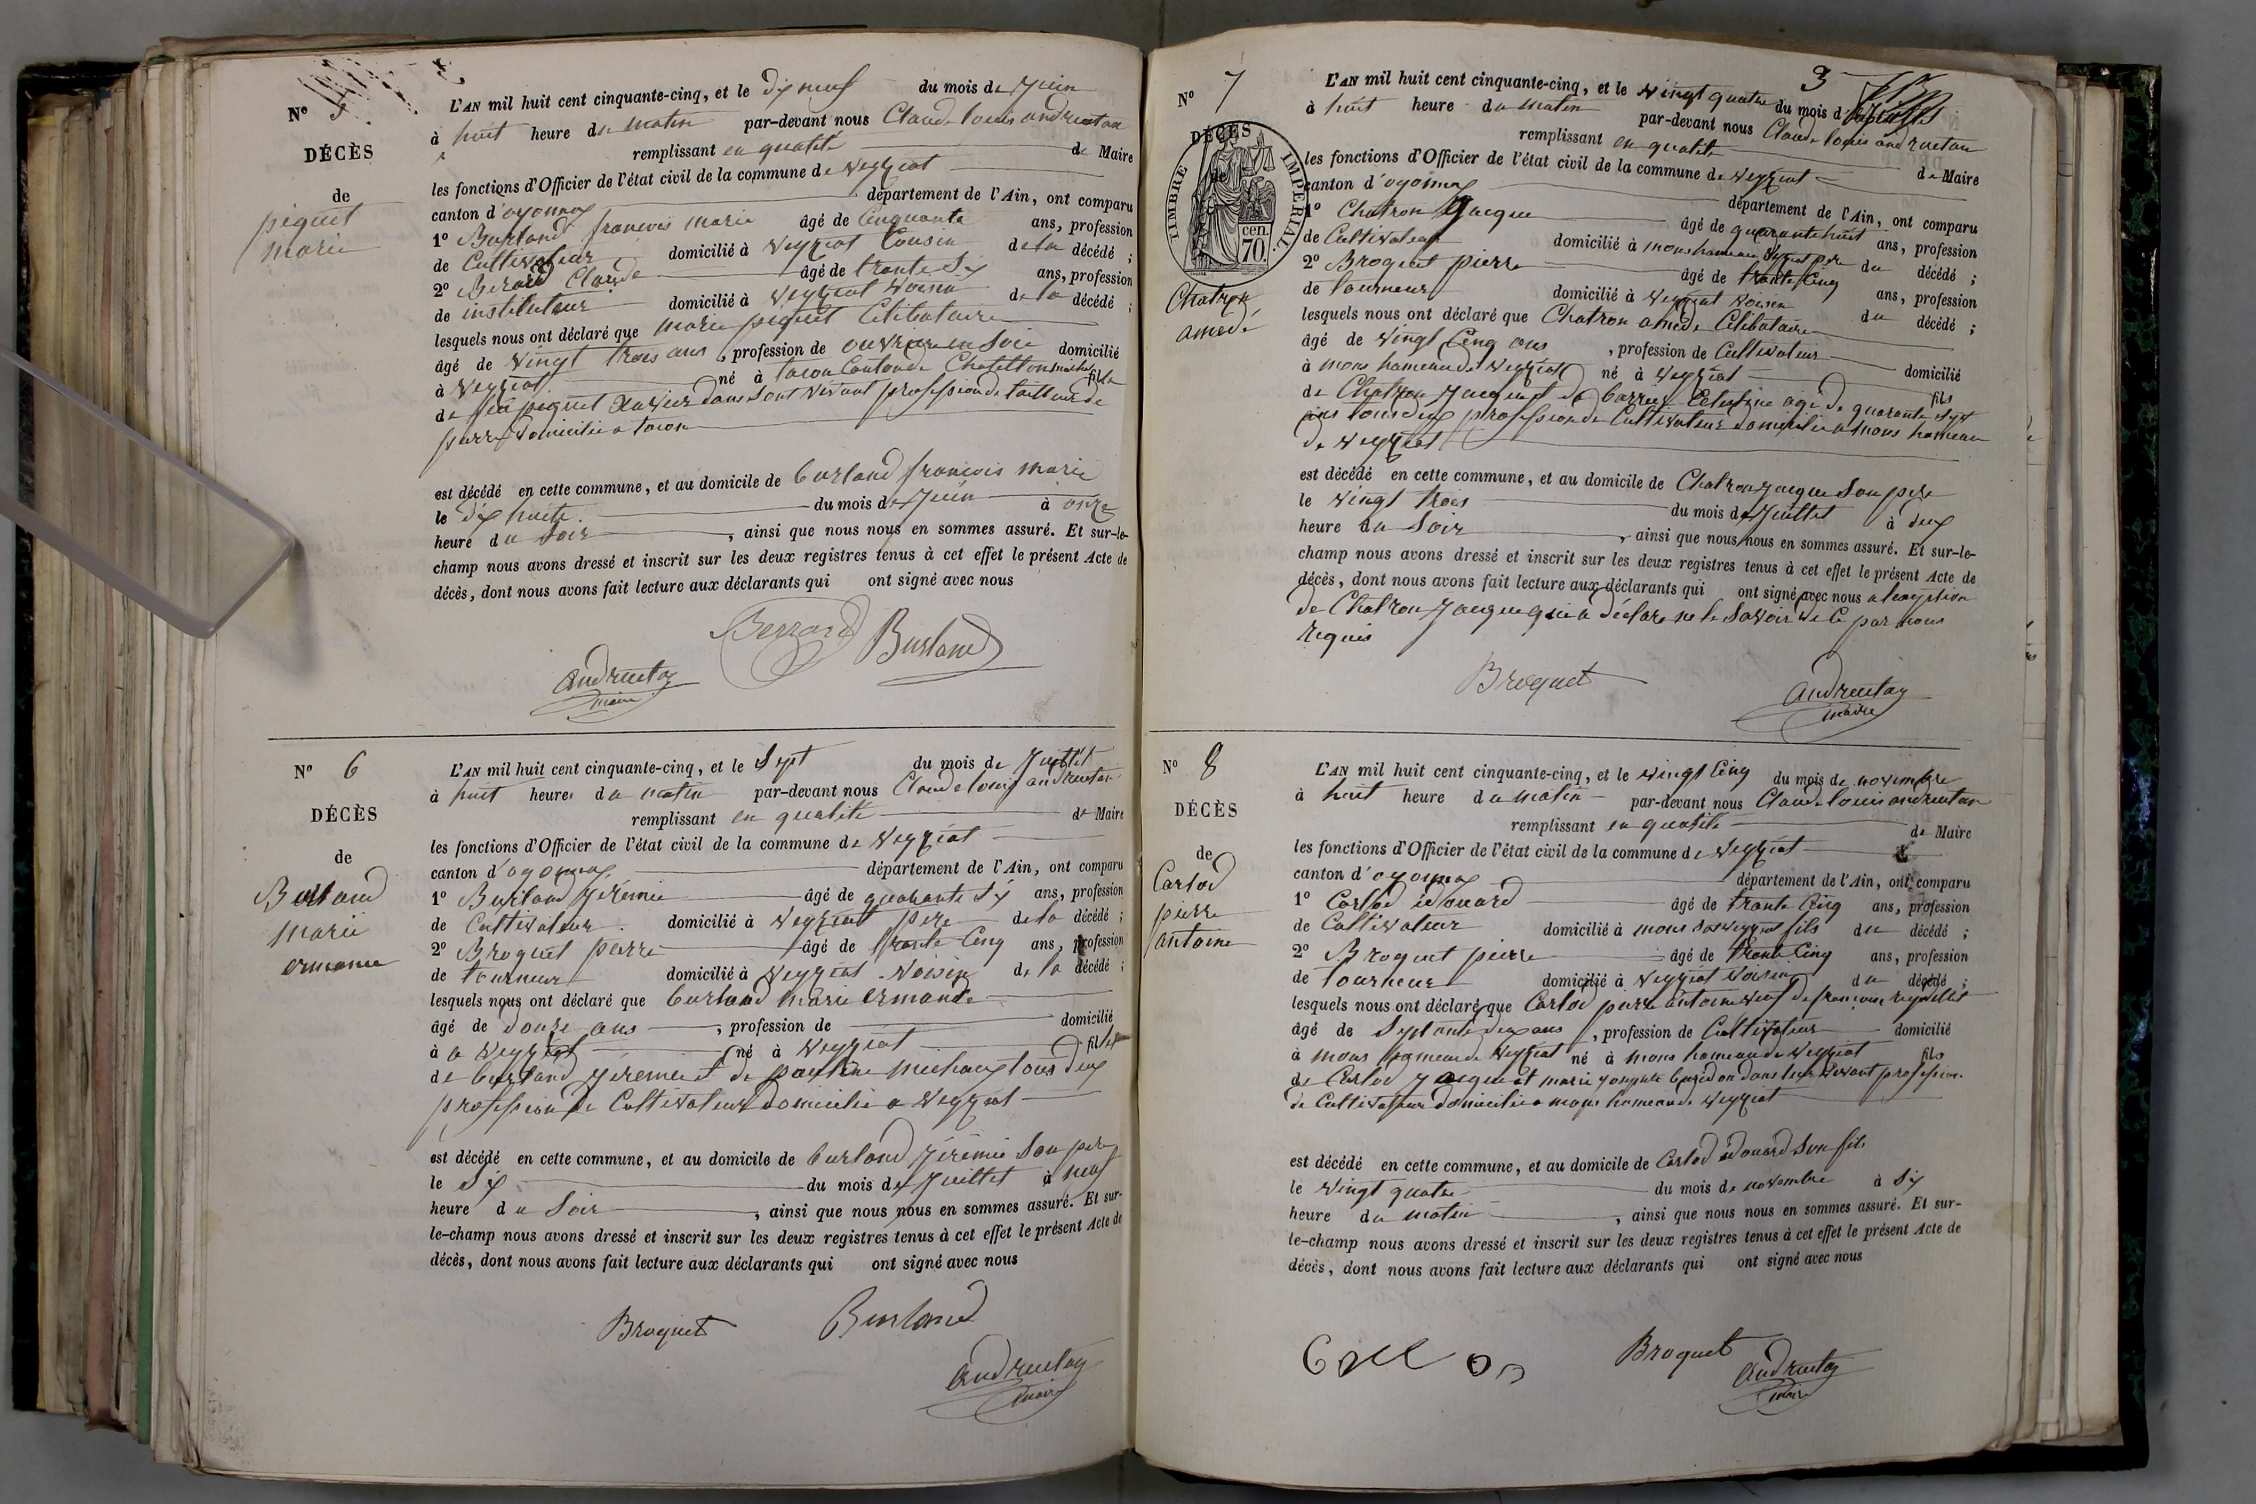 Nº 5
DÉCÈS
de
piquet
marie
L'AN mil huit cent cinquante-cinq, et le dix neuf du mois de Juin
à huit heure du matin par-devant nous Claude louis andruetan
remplissant en qualité de Maire
les fonctions d'Officier de l'état civil de la commune de veyziat
canton d'oyonnax département de l'Ain, ont comparu
1º Burland francois marie âgé de Cinquante ans, profession
de Cultivateur domicilié à veyziat Cousin de la décédé ;
2º Berard Claude âgé de trente Six ans, profession
de instituteur domicilié à veyziat voisin de la décédé ;
lesquels nous ont déclaré que marie piquet Célibataire
âgé de vingt trois ans, profession de ouvriere en Soie domicilié
à veyziat né à tacon Canton de Chatillon michaille fille
de feu piquet dans Sont vivant profession de tailleur de
pierre domicilié a tacon
est décédé en cette commune, et au domicile de burland francois marie
le dix huite du mois de Juin à onze
heure du Soir, ainsi que nous nous en sommes assuré. Et sur-le-
champ nous avons dressé et inscrit sur les deux registres tenus à cet effet le présent Acte de
décès, dont nous avons fait lecture aux déclarants qui ont signé avec nous
Berrard Burland
andruetan
maire
Nº 6
DÉCÈS
de
Burland
marie
ermance
L'AN mil huit cent cinquante-cinq, et le Sept du mois de Juillet
à huit heure du matin par-devant nous Claude louis andruetan
remplissant en qualité de Maire
les fonctions d'Officier de l'état civil de la commune de veyziat
canton d'oyonnax département de l'Ain, ont comparu
1º Burland Jérémie âgé de quarante Six ans, profession
de Cultivateur domicilié à veyziat pere de la décédé ;
2º Broquet pierre âgé de trente Cinq ans, profession
de tourneur domicilié à veyziat voisin de la décédé ;
lesquels nous ont déclaré que burland marie ermande
âgé de douze ans, profession de domicilié
à a veyziat né à veyziat fille
de burland Jéremie et de pauline michaux tous deux
profession de Cultivateur domicilié a veyziat
est décédé en cette commune, et au domicile de burland Jérémie Son pere
le Six du mois de Juillet à neuf
heure du Soir, ainsi que nous nous en sommes assuré. Et sur-
le-champ nous avons dressé et inscrit sur les deux registres tenus à cet effet le présent Acte de
décès, dont nous avons fait lecture aux déclarants qui ont signé avec nous
Broquet Burland
andruetan
maire
3
Nº 7
DÉCÈS
de
TIMBRE IMPERIAL
cen.
70.
Chatron
amedé
L'AN mil huit cent cinquante-cinq, et le vingt quatre du mois de Juillet
à huit heure du matin par-devant nous Claude louis andruetan
remplissant en qualité de Maire
les fonctions d'Officier de l'état civil de la commune de veyziat
canton d'oyonnax département de l'Ain, ont comparu
1º Chatron Jacque âgé de quarante huit ans, profession
de Cultivateur domicilié à mons hameau de veyziat pere du décédé ;
2º Broquet pierre âgé de trente Cinq ans, profession
de tourneur domicilié à veyziat voisin du décédé ;
lesquels nous ont déclaré que Chatron amédé Célibataire
âgé de vingt Cinq ans, profession de Cultivateur domicilié
à mons hameau de veyziat né à veyziat fils
de Chatron Jacque et de Celestine agé de quarante sept
ans tous deux profession de Cultivateur domicilié a mons hameau
de veyziat
est décédé en cette commune, et au domicile de Chatron Jacque Son pere
le vingt trois du mois de Juillet à deux
heure du Soir, ainsi que nous nous en sommes assuré. Et sur-le-
champ nous avons dressé et inscrit sur les deux registres tenus à cet effet le présent Acte de
décès, dont nous avons fait lecture aux déclarants qui ont signé avec nous a lexception
de Chatron Jacque qui a déclaré ne le Savoir de Ce par nous
requis
Broquet andruetan
maire
Nº 8
DÉCÈS
de
Carlod
pierre
antoine
L'AN mil huit cent cinquante-cinq, et le vingt Cinq du mois de novembre
à huit heure du matin par-devant nous Claude louis andruetan
remplissant en qualité de Maire
les fonctions d'Officier de l'état civil de la commune de veyziat
canton d'oyonnax département de l'Ain, ont comparu
1º Carlod édouard âgé de trente Cinq ans, profession
de Cultivateur domicilié à mons veyziat fils du décédé ;
2º Broquet pierre âgé de trente Cinq ans, profession
de tourneur domicilié à veyziat voisin du décédé ;
lesquels nous ont déclaré que Carlod pierre antoine veuf de francoise
âgé de Septante deux ans, profession de Cultivateur domicilié
à mons hameau de veyziat né à mons hameau de veyziat fils
de Carlod Jacque et marie dans leur vivant profession
de Cultivateur domicilié a mons hameau de veyziat
est décédé en cette commune, et au domicile de Carlod édouard Son fils
le vingt quatre du mois de novembre à Six
heure du matin, ainsi que nous nous en sommes assuré. Et sur-
le-champ nous avons dressé et inscrit sur les deux registres tenus à cet effet le présent Acte de
décès, dont nous avons fait lecture aux déclarants qui ont signé avec nous
Broquet
andruetan
maire